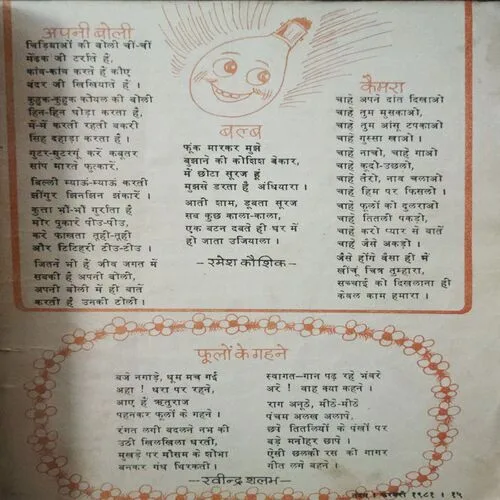 अपनी बोली
चिड़ियाओं की बोली चीं-चीं
मेंढक जी टर्राते हैं,
कांव-कांव करते हैं कौए
बंदर जी खिखियाते हैं ।
कुहुक-कुहुक कोयल की बोली
हिन-हिन घोड़ा करता है,
में-में करती रहती बकरी
सिंह दहाड़ा करता है ।
गुटर-गुटरगूं करें कबूतर
सांप मारते फुत्कारें,
बिल्ली म्याऊं-म्याऊं करती
झींगुर झिनझिन झंकारें ।
कुत्ता भौं-भौं गुर्राता है
मोर पुकारे पीउ-पीउ,
करे फाखता तूही-तूही
और टिटिहरी टीउ-टीउ ।
जितने भी हैं जीव जगत में
सबकी है अपनी बोली,
अपनी बोली में ही बातें
करती है उनकी टोली ।
बल्ब
फूंक मारकर मुझे
बुझाने की कोशिश बेकार,
मैं छोटा सूरज हूं
मुझसे डरता है अंधियारा ।
आती शाम, डूबता सूरज
सब कुछ काला-काला,
एक बटन दबते ही घर में
हो जाता उजियाला ।
-रमेश कौशिक-
कैमरा
चाहे अपने दांत दिखाओ
चाहे तुम मुसकाओ,
चाहे तुम आंसू टपकाओ
चाहे गुस्सा खाओ ।
चाहे नाचो, चाहे गाओ
चाहे कूदो-उछलो,
चाहे तैरो, नाव चलाओ
चाहे हिम पर फिसलो ।
चाहे फूलों को दुलराओ
चाहे तितली पकड़ो,
चाहे करो प्यार से बातें
चाहे जैसे अकड़ो ।
जैसे होंगे वैसा ही मैं
खींचूं चित्र तुम्हारा,
सच्चाई को दिखलाना ही
केवल काम हमारा ।
फूलों के गहने
बजे नगाड़े, धूम मच गई
अहा ! धरा पर रहने,
आए हैं ऋतुराज
पहनकर फूलों के गहने ।
रंगत लगी बदलने नभ की
उठी खिलखिला धरती,
मुखड़े पर मौसम के शोभा
बनकर गंध थिरकती ।
स्वागत-गान पढ़ रहे भंवरे
अरे ! वाह क्या कहने ।
राग अनूठे, मीठे-मीठे
पंचम अलख अलापे,
छपे तितलियों के पंखों पर
बड़े मनोहर छापे ।
ऐसी छलकी रस की गागर
गीत लगे बहने ।
-रवीन्द्र शलभ-
फरवरी १९८१ । १५